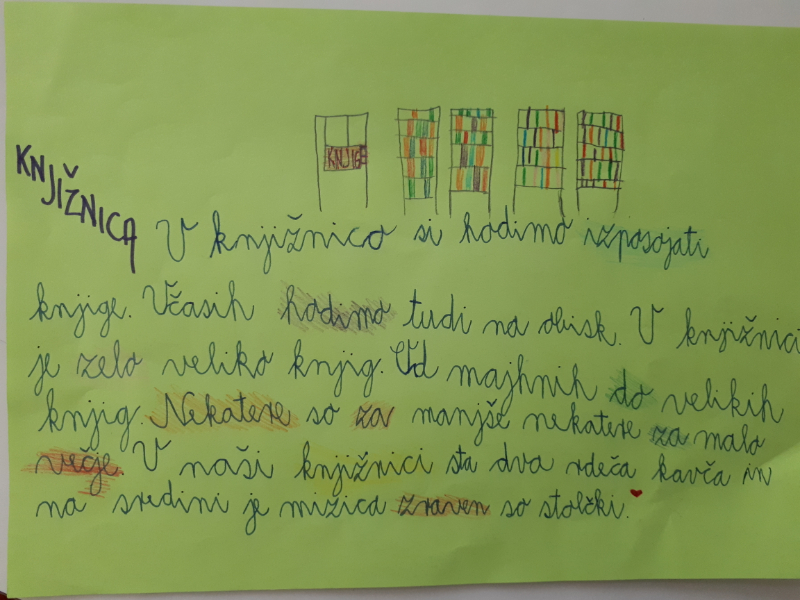 KNJIGE
KNJIŽNICA
V knjižnico si hodimo izposojati
knjige. Včasih hodimo tudi na obisk. V knjižnici
je zelo veliko knjig. Od majhnih do velikih
knjig. Nekatere so za manjše nekatere za malo
večje. V naši knjižnici sta dva rdeča kavča in
na sredini je mizica zraven so stolčki.